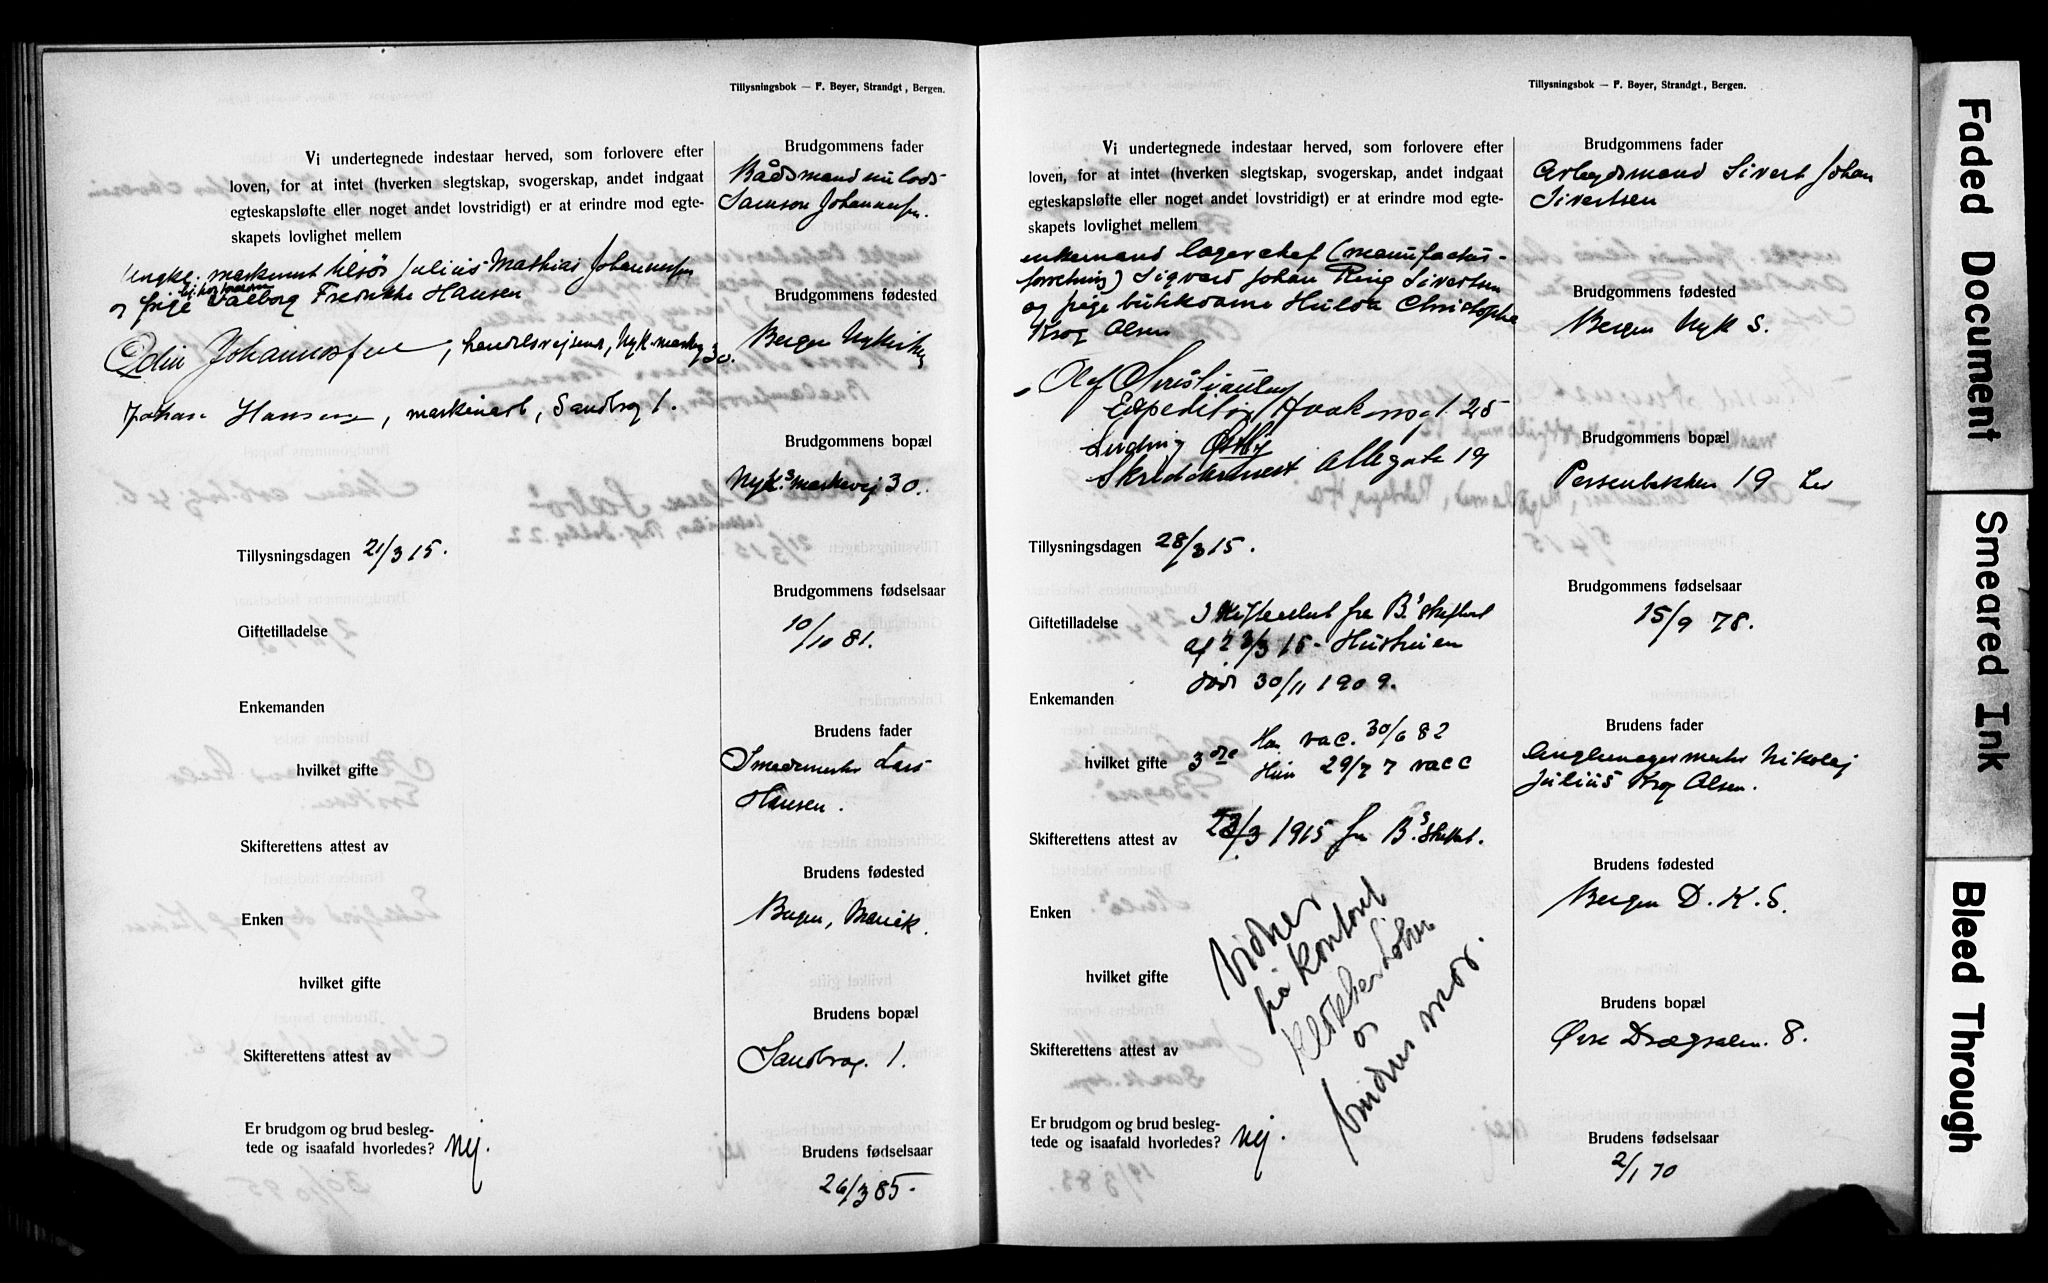 Tillysningsbok — F. Beyer, Strandgt., Bergen.
Vi undertegnede indestaar herved, som forlovere efter
loven, for at intet (hverken slegtskap, svogerskap, andet indgaat
egteskapsløfte eller noget andet lovstridigt) er at erindre mod egte-
skapets lovlighet mellem
Julius Mathias Johannessen
og pige Valborg Fredrikke Hansen
Odin Johannessen, handelsreisende, Nyk. markvej 30.
Johan Hansen, maskinarb, Sandbrog 1.
Tillysningsdagen 21/3 15.
Giftetilladelse
Enkemanden
hvilket gifte
Skifterettens attest av
Enken
hvilket gifte
Skifterettens attest av
Er brudgom og brud besleg-
tede og isaafald hvorledes? Nej.
Brudgommens fader
Bådsmand nu lods
Samson Johannessen.
Brudgommens fødested
Bergen Nykirke
Brudgommens bopæl
Nyk.s markevej 30.
Brudgommens fødselsaar
10/10 81.
Brudens fader
Smedmester Lars
Hansen.
Brudens fødested
Bergen, Mariek.
Brudens bopæl
Sandbrog. 1.
Brudens fødselsaar
26/3 85.
Tillysningsbok — F. Beyer, Strandgt., Bergen.
Vi undertegnede indestaar herved, som forlovere efter
loven, for at intet (hverken slegtskap, svogerskap, andet indgaat
egteskapsløfte eller noget andet lovstridigt) er at erindre mod egte-
skapets lovlighet mellem
enkemand lagerchef (manufactur-
forretning) Sigvard Johan Ring Sivertsen
og pige butikdame Hulda Christopha
Krog Olsen
Olaf Christiansen
Expeditør, Haakonsg. 25
Ludvig Østby
Skræddermest Allegate 19
Tillysningsdagen 28/3 15.
Giftetilladelse
Skifteattest fra B.s skifteret
af 23/3 15 - Hustruen
død 30/11 1909.
Enkemanden
hvilket gifte 3die Han vac. 30/6 82
Hun 29/7 7 vacc
Skifterettens attest av 23/3 1915 fra B.s skifteret.
Enken
hvilket gifte
Skifterettens attest av
Vidner
på kontoret
Klokker
og
brudens mor.
Er brudgom og brud besleg-
tede og isaafald hvorledes? Nej.
Brudgommens fader
Arbejdsmand Sivert Johan
Sivertsen
Brudgommens fødested
Bergen Nyk S.
Brudgommens bopæl
Persenbakken 19
Brudgommens fødselsaar
15/9 78.
Brudens fader
Nikolaj
Julius Krog Olsen.
Brudens fødested
Bergen D. K. S.
Brudens bopæl
Øvre Drægsalm. 8.
Brudens fødselsaar
2/1 70
Faded Document
Smeared Ink
Bleed Through